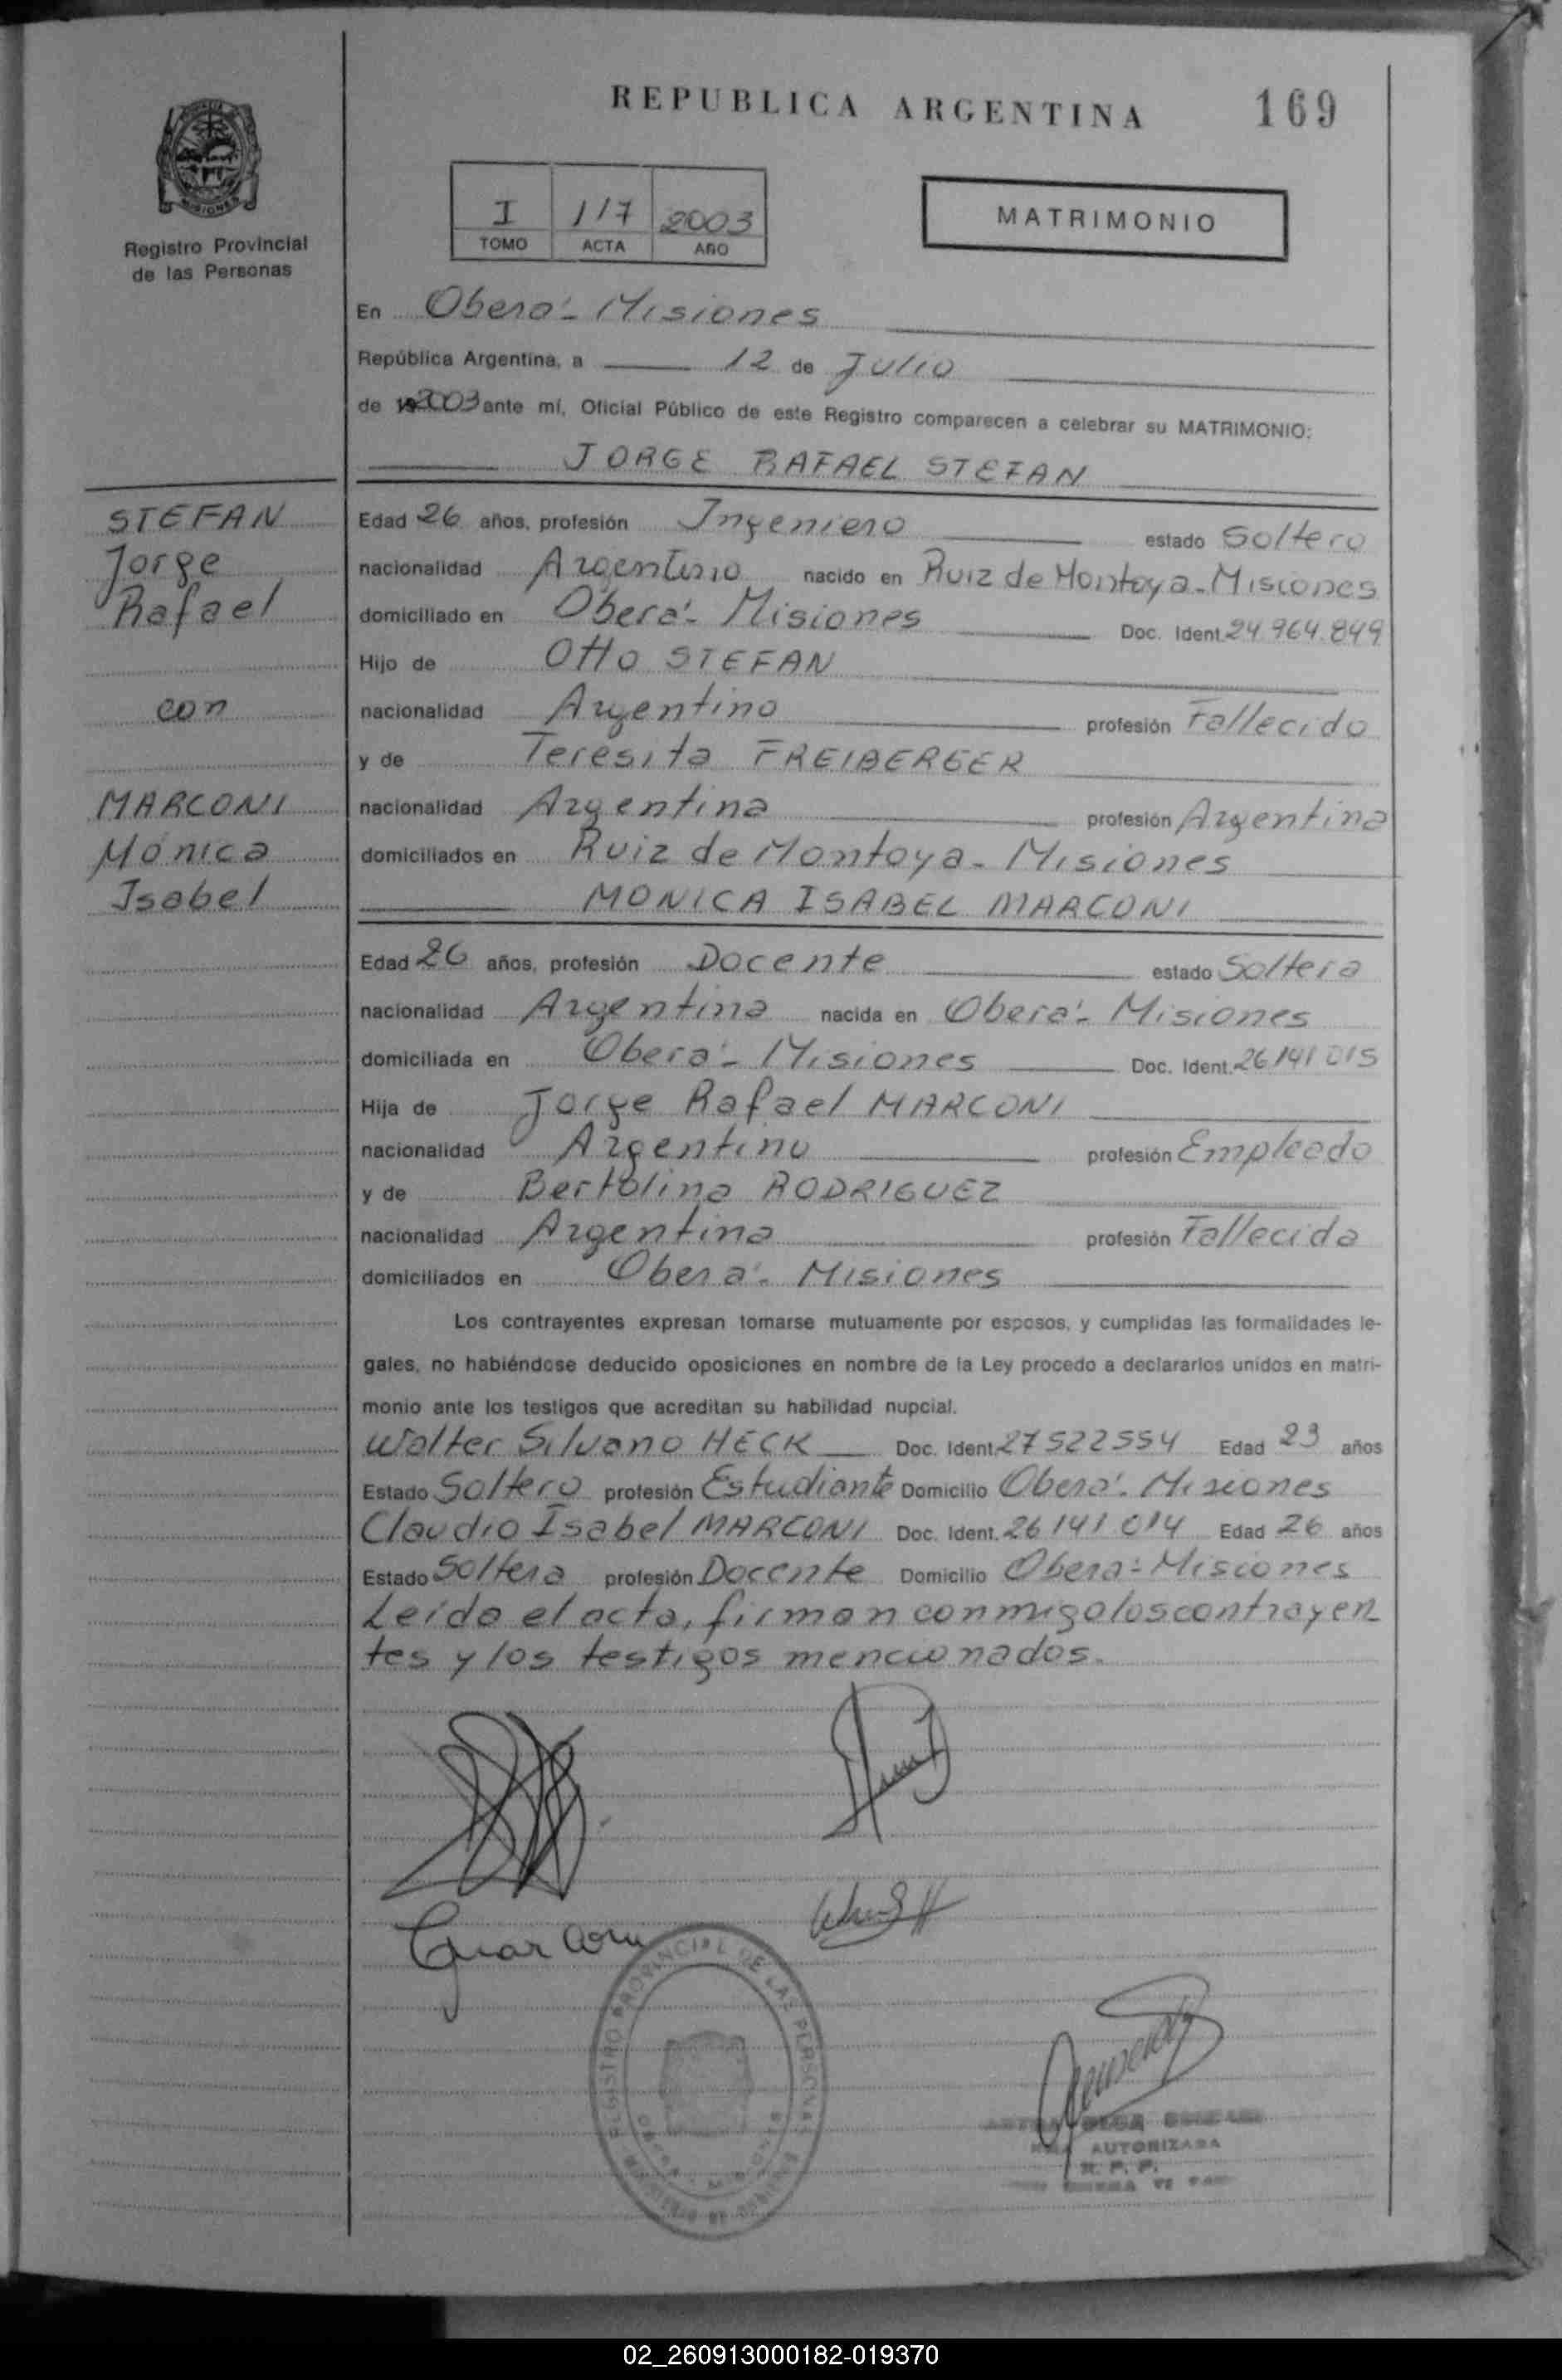 REPUBLICA ARGENTINA 169
Registro Provincial
de las Personas
I 117 2003
TOMO ACTA AÑO
MATRIMONIO
En Oberá - Misiones
República Argentina, a 12 de Julio
de 2003 ante mí, Oficial Público de este Registro comparecen a celebrar su MATRIMONIO:
JORGE RAFAEL STEFAN
STEFAN
Jorge
Rafael
con
MARCONI
Mónica
Isabel
Edad 26 años, profesión Ingeniero estado Soltero
nacionalidad Argentino nacido en Ruiz de Montoya - Misiones
domiciliado en Oberá - Misiones Doc. Ident. 24.964.849
Hijo de Otto STEFAN
nacionalidad Argentino profesión Fallecido
y de Teresita FREIBERGER
nacionalidad Argentina profesión Argentina
domiciliados en Ruiz de Montoya - Misiones
MONICA ISABEL MARCONI
Edad 26 años, profesión Docente estado Soltera
nacionalidad Argentina nacida en Oberá - Misiones
domiciliada en Oberá - Misiones Doc. Ident. 26141015
Hija de Jorge Rafael MARCONI
nacionalidad Argentino profesión Empleado
y de Bertolina RODRIGUEZ
nacionalidad Argentina profesión Fallecida
domiciliados en Oberá - Misiones
Los contrayentes expresan tomarse mutuamente por esposos, y cumplidas las formalidades le-
gales, no habiéndose deducido oposiciones en nombre de la Ley procedo a declararlos unidos en matri-
monio ante los testigos que acreditan su habilidad nupcial.
Walter Silvano HECK Doc. Ident. 27522554 Edad 23 años
Estado Soltero profesión Estudiante Domicilio Oberá - Misiones
Claudia Isabel MARCONI Doc. Ident. 26141014 Edad 26 años
Estado Soltera profesión Docente Domicilio Oberá - Misiones
Leída el acta, firman conmigo los contrayen
tes y los testigos mencionados.
REGISTRO PROVINCIAL DE LAS PERSONAS
AUTORIZADA
R. P. P.
02_260913000182-019370